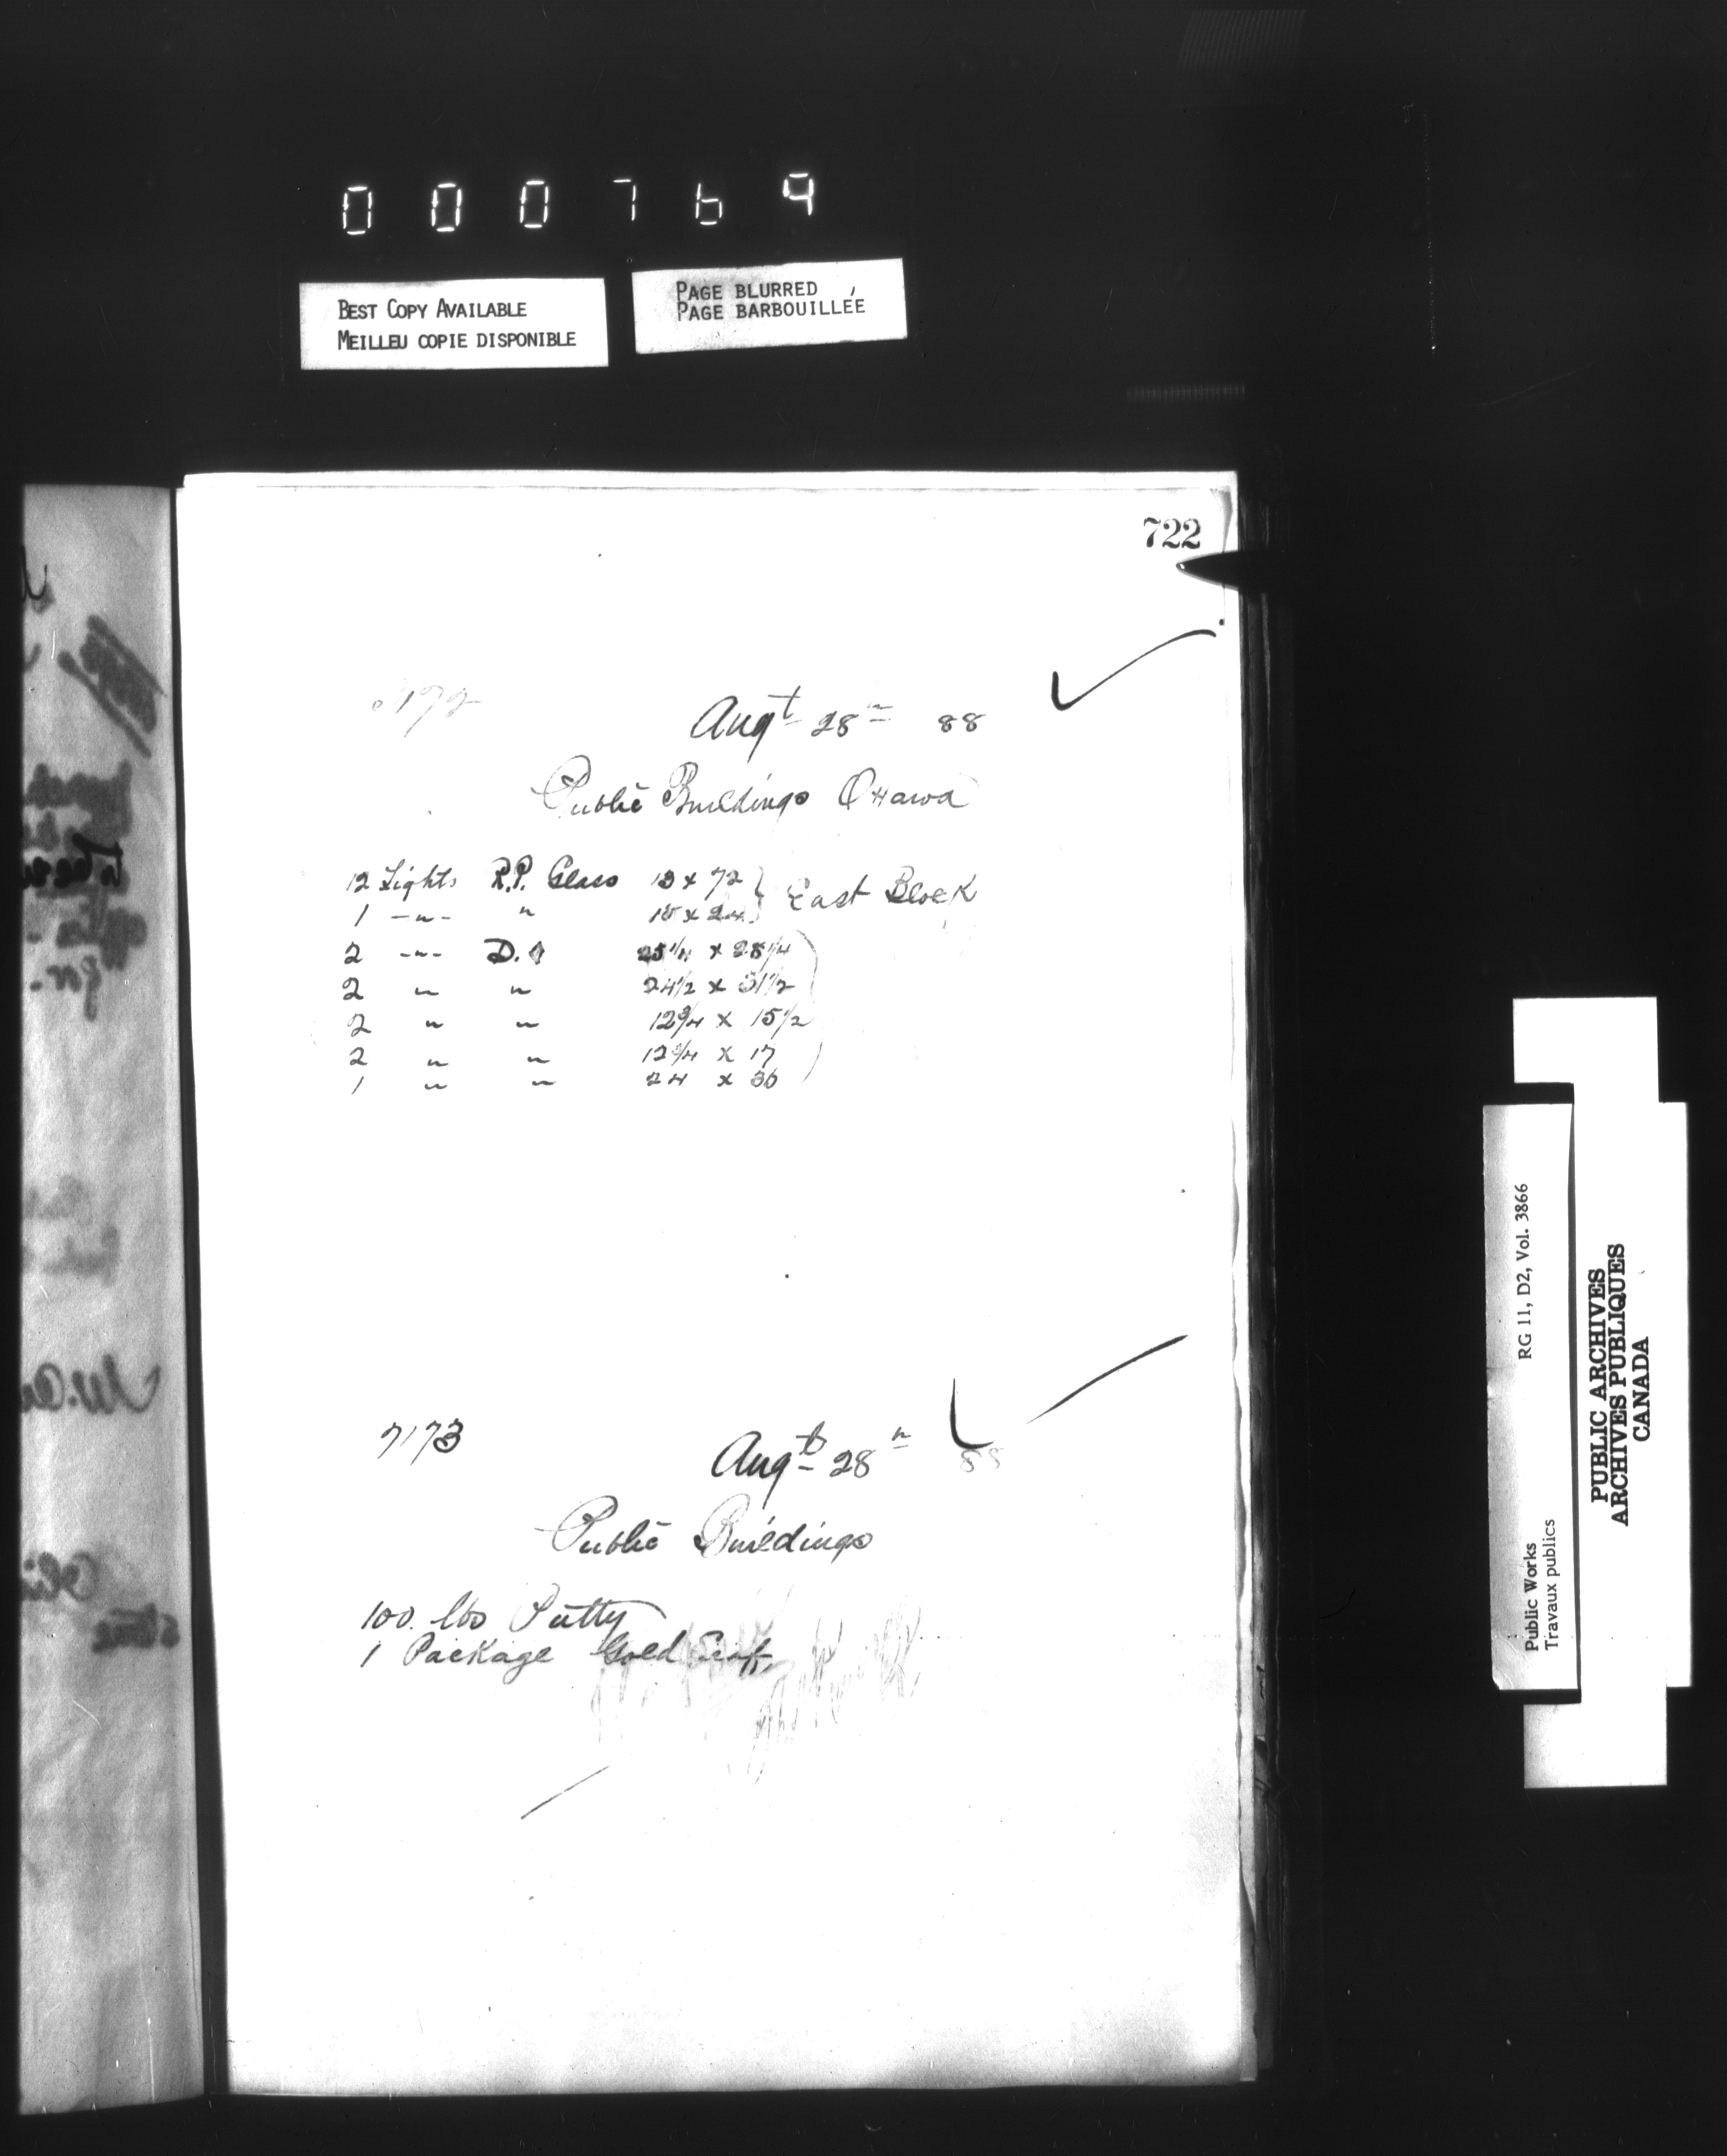 000769
BEST COPY AVAILABLE
MEILLEU COPIE DISPONIBLE
PAGE BLURRED
PAGE BARBOUILLÉE
722
7172
Augt 28th 88
Public Buildings Ottawa
12 Lights R.P. Glass 13 x 72 } East Block
1 -"- " 18 x 24
2 -"- D. 25 1/4 x 28 1/4
2 " " 24 1/2 x 31 1/2
2 " " 12 3/4 x 15 1/2
2 " " 12 3/4 x 17
1 " " 24 x 36
7173
Augt 28th 88
Public Buildings
100. lbs Putty
1 Package Gold Leaf
Public Works
Travaux publics
RG 11, D2, Vol. 3866
PUBLIC ARCHIVES
ARCHIVES PUBLIQUES
CANADA